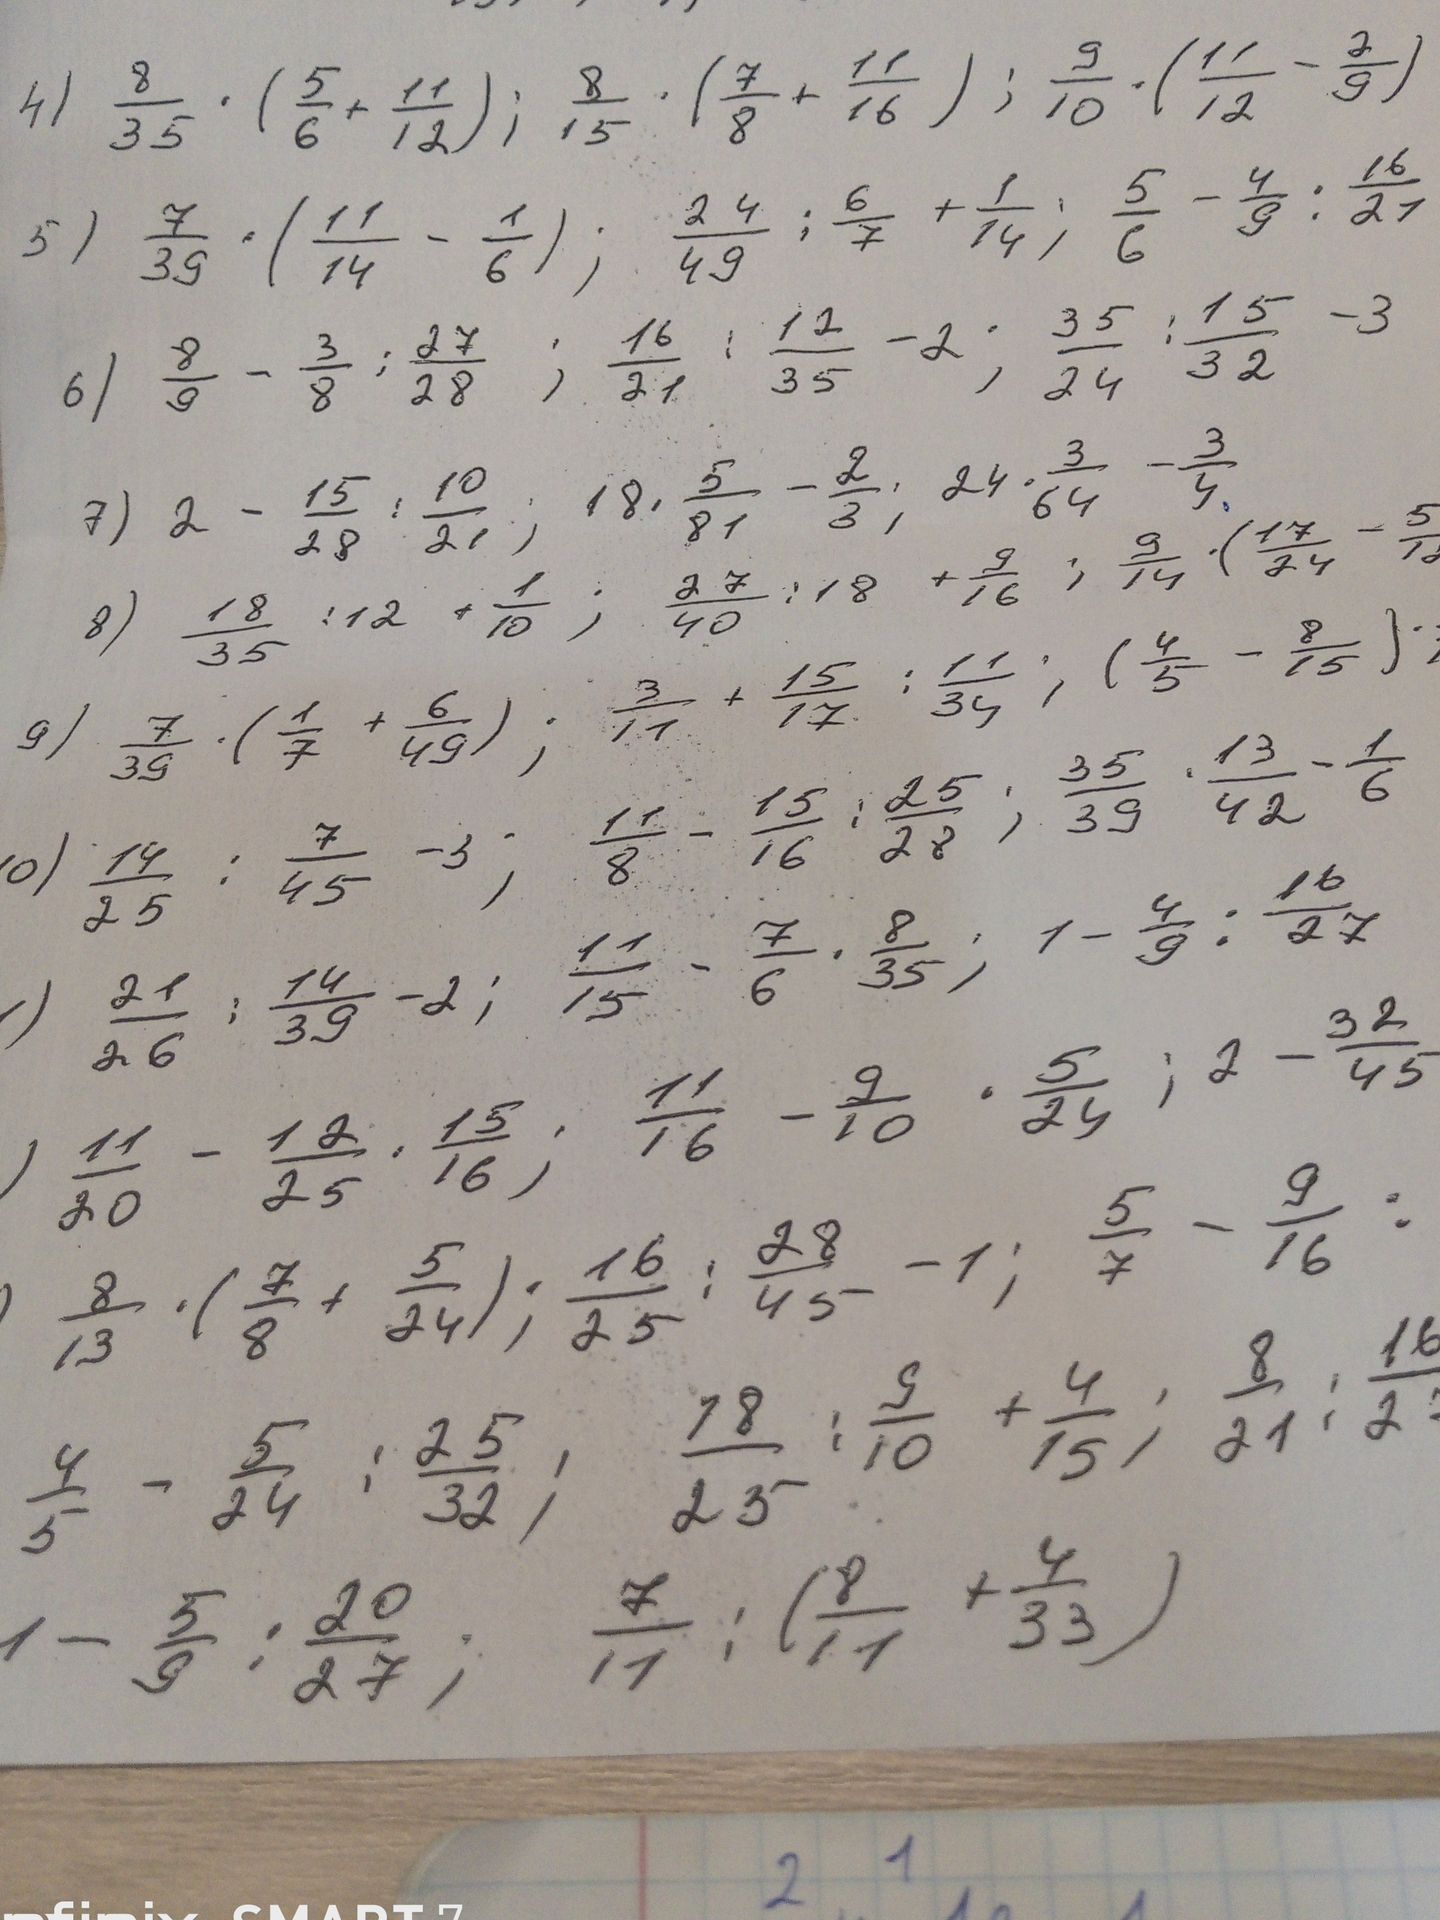 4) 8/35 · (5/6 + 11/12); 8/15 · (7/8 + 11/16); 9/10 · (11/12 - 2/9)
5) 7/39 · (11/14 - 1/6); 24/49 : 6/7 + 1/14; 5/6 - 4/9 : 16/21
6) 8/9 - 3/8 : 27/28; 16/21 : 12/35 - 2; 35/24 : 15/32 - 3
7) 2 - 15/28 : 10/21; 18 · 5/81 - 2/3; 24 · 3/64 - 3/4
8) 18/35 : 12 + 1/10; 27/40 : 18 + 9/16; 9/14 · (17/24 - 5/
9) 7/39 · (1/7 + 6/49); 3/11 + 15/17 : 11/34; (4/5 - 8/15) ·
10) 14/25 : 7/45 - 3; 11/8 - 15/16 : 25/28; 35/39 · 13/42 - 1/6
) 21/26 : 14/39 - 2; 11/15 - 7/6 · 8/35; 1 - 4/9 : 16/27
) 11/20 - 12/25 · 15/16; 11/16 - 9/10 · 5/24; 2 - 32/45
) 8/13 · (7/8 + 5/24); 16/25 : 28/45 - 1; 5/7 - 9/16 :
4/5 - 5/24 : 25/32; 18/25 : 9/10 + 4/15; 8/21 : 16/
1 - 5/9 : 20/27; 7/11 : (8/11 + 4/33)
2 1
SMART 7